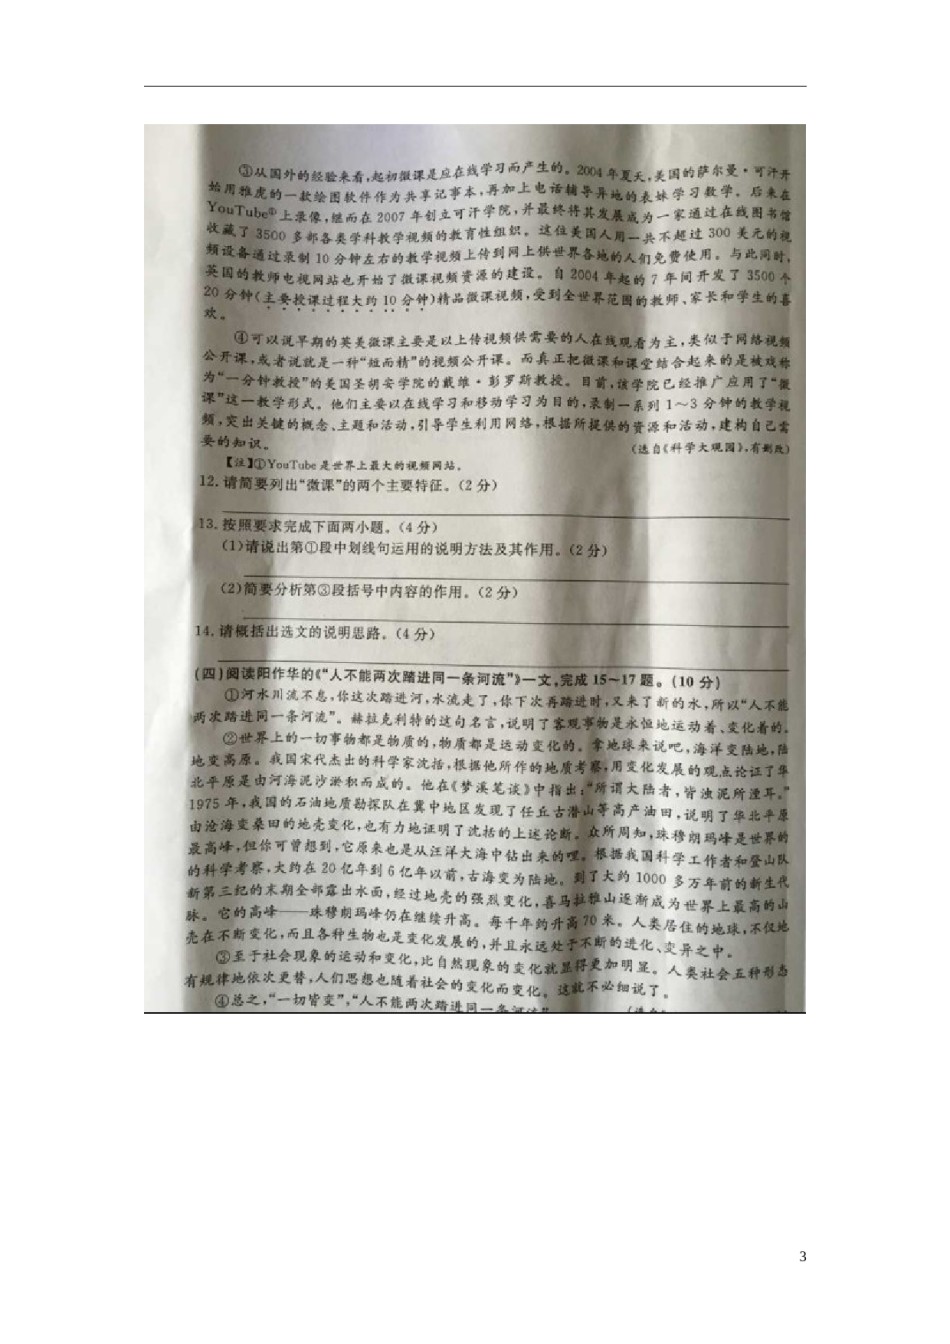 ③从国外的经验来看,起初微课是应在线学习而产生的。2004年夏天,美国的萨尔曼·可汗开
始用雅虎的一款绘图软件作为共享记事本,再加上电话辅导异地的表妹学习数学。后来在
YouTube①上录像,继而在2007年创立可汗学院,并最终将其发展成为一家通过在线图书馆
收藏了3500多部各类学科教学视频的教育性组织。这位美国人用一共不超过300美元的视
频设备通过录制10分钟左右的教学视频上传到网上供世界各地的人们免费使用。与此同时,
英国的教师电视网站也开始了微课视频资源的建设。自2004年起的7年间开发了3500个
20分钟(主要授课过程大约10分钟)精品微课视频,受到全世界范围的教师、家长和学生的喜
欢。
④可以说早期的英美微课主要是以上传视频供需要的人在线观看为主,类似于网络视频
公开课,或者说就是一种“短而精”的视频公开课。而真正把微课和课堂结合起来的是被戏称
为“一分钟教授”的美国圣胡安学院的戴维·彭罗斯教授。目前,该学院已经推广应用了“微
课”这一教学形式。他们主要以在线学习和移动学习为目的,录制一系列1～3分钟的教学视
频,突出关键的概念、主题和活动,引导学生利用网络,根据所提供的资源和活动,建构自己需
要的知识。
(选自《科学大观园》,有删改)
【注】①YouTube是世界上最大的视频网站。
12.请简要列出“微课”的两个主要特征。(2分)
13.按照要求完成下面两小题。(4分)
(1)请说出第①段中划线句运用的说明方法及其作用。(2分)
(2)简要分析第③段括号中内容的作用。(2分)
14.请概括出选文的说明思路。(4分)
(四)阅读阳作华的《“人不能两次踏进同一条河流”》一文,完成15~17题。(10分)
①河水川流不息,你这次踏进河,水流走了,你下次再踏进时,又来了新的水,所以“人不能
两次踏进同一条河流”。赫拉克利特的这句名言,说明了客观事物是永恒地运动着、变化着的。
②世界上的一切事物都是物质的,物质都是运动变化的。拿地球来说吧,海洋变陆地,陆
地变高原。我国宋代杰出的科学家沈括,根据他所作的地质考察,用变化发展的观点论证了华
北平原是由河海泥沙淤积而成的。他在《梦溪笔谈》中指出:“所谓大陆者,皆浊泥所湮耳。”
1975年,我国的石油地质勘探队在冀中地区发现了任丘古潜山等高产油田,说明了华北平原
由沧海变桑田的地壳变化,也有力地证明了沈括的上述论断。众所周知,珠穆朗玛峰是世界的
最高峰,但你可曾想到,它原来也是从汪洋大海中钻出来的哩。根据我国科学工作者和登山队
的科学考察,大约在20亿年到6亿年以前,古海变为陆地。到了大约1000多万年前的新生代
新第三纪的末期全部露出水面,经过地壳的强烈变化,喜马拉雅山逐渐成为世界上最高的山
脉。它的高峰——珠穆朗玛峰仍在继续升高。每千年约升高70米。人类居住的地球,不仅地
壳在不断变化,而且各种生物也是变化发展的,并且永远处于不断的进化、变异之中。
③至于社会现象的运动和变化,比自然现象的变化就显得更加明显。人类社会五种形态
有规律地依次更替,人们思想也随着社会的变化而变化。这就不必细说了。
④总之,“一切皆变”,“人不能两次踏进同一条河流”
3